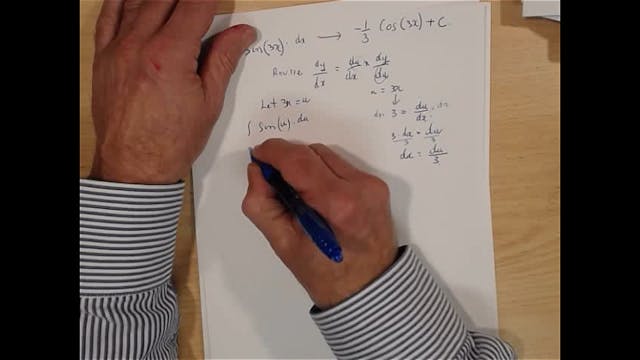 Sin(3x) · dx → -1/3 Cos(3x) + C.
Reverse dy/dx = du/dx x dy/du
u = 3x
↓
Let 3x = u
dx 3 = du/dx · dx
∫ Sin(u) · du
3·dx/3 = du/3
dx = du/3